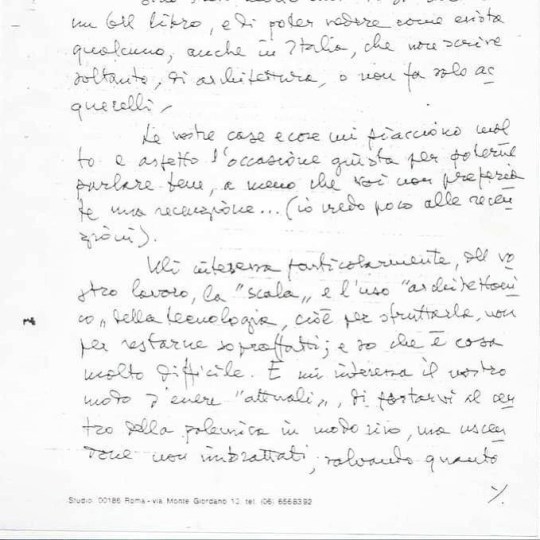 un bel libro, e di poter vedere come esista
qualcuno, anche in Italia, che non scrive
soltanto, di architettura, o non fa solo ac
querelli,
Le vostre case e cose mi piacciono mol
to e aspetto l'occasione giusta per poterne
parlare bene, a meno che voi non preferia
te una recensione... (io credo poco alle recen
sioni).
Mi interessa particolarmente, del vo
stro lavoro, la "scala" e l'uso "architettoni
co" della tecnologia, cioè per sfruttarla, non
per restarne sopraffatti; e so che è cosa
molto difficile. E mi interessa il vostro
modo d'essere "attuali", di portarvi al cen
tro della polemica in modo vivo, ma uscen
done non imbrattati, salvando quanto
./.
Studio: 00186 Roma - via Monte Giordano tel. (06)